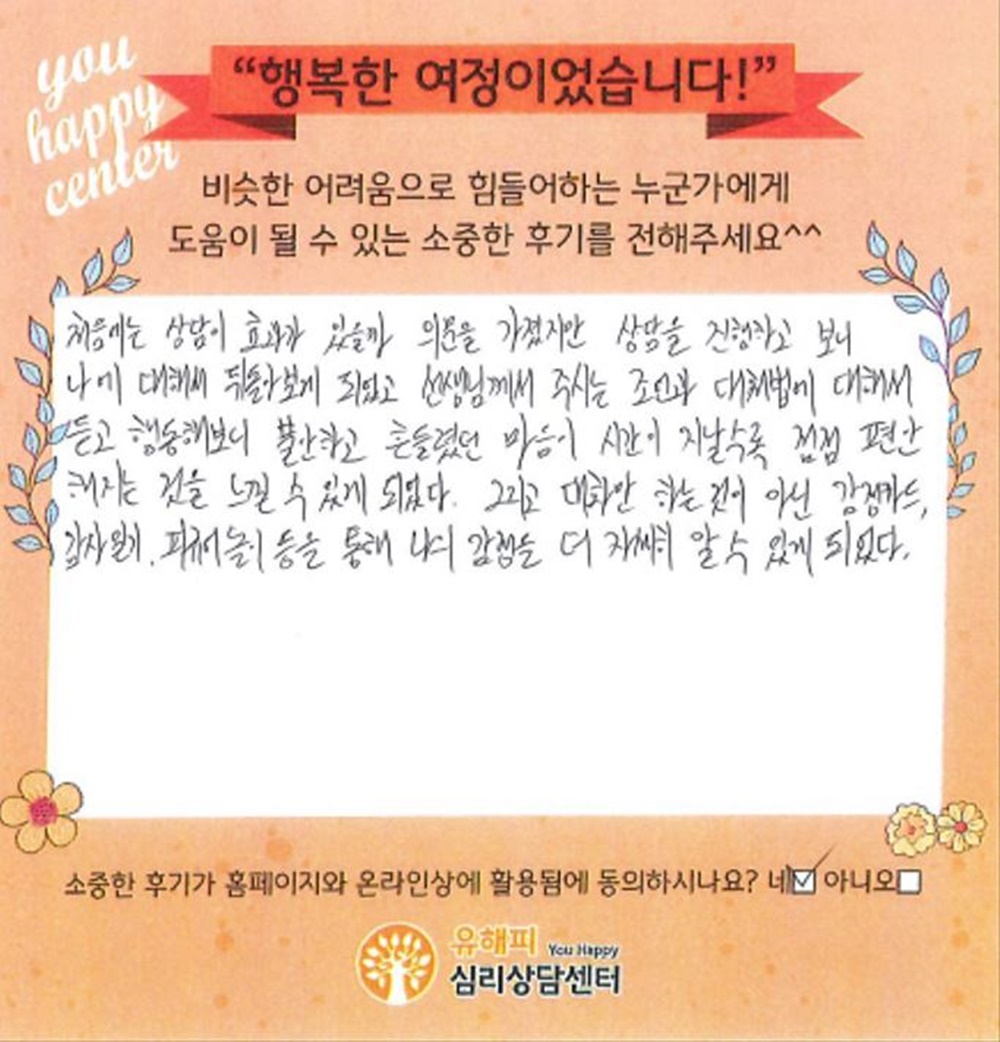 you
happy
center
“행복한 여정이었습니다!”
비슷한 어려움으로 힘들어하는 누군가에게
도움이 될 수 있는 소중한 후기를 전해주세요^^
처음에는 상담이 효과가 있을까 의문을 가졌지만 상담을 진행하고 보니
나에 대해서 뒤돌아보게 되었고 선생님께서 주시는 조언과 대처법에 대해서
듣고 행동해보니 불안하고 흔들렸던 마음이 시간이 지날수록 점점 편안
해지는 것을 느낄 수 있게 되었다. 그리고 대화만 하는것이 아닌 감정카드,
감사일기, 피규어놀이 등을 통해 나의 감정들 더 자세히 알 수 있게 되었다.
소중한 후기가 홈페이지와 온라인상에 활용됨에 동의하시나요? 네 아니오
유해피 You Happy
심리상담센터